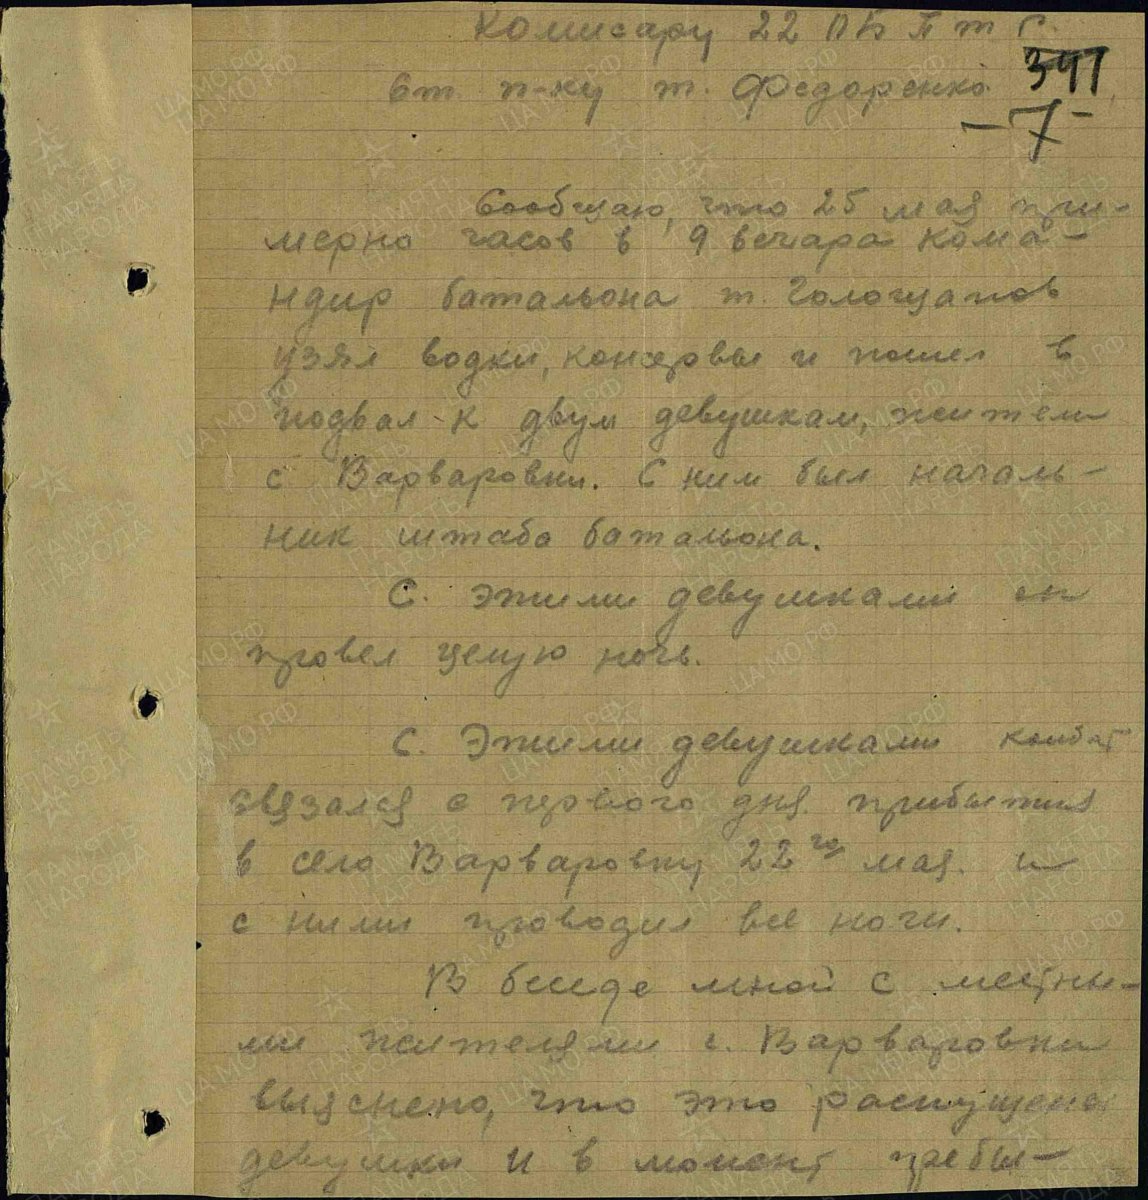 Комисару 22 ПБ П т Г.
ст. п-ку т. Федоренко
397
-7-
Сообщаю, что 25 мая при-
мерно часов в 9 вечара кома-
ндир батальона т. Голощапов
узял водки, консервы и пошел в
подвал к двум девушкам, жители
с Варваровки. С ним был началь-
ник штаба батальона.
С. этими девушками он
провел целую ночь.
С. Этими девушками комбат
связался с первого дня прибытия
в село Варваровку 22го мая. и
с ними проводил все ночи.
В беседе мной с местны-
ми жителями с. Варваровки
выяснено, что это распущеные
девушки и в момент пребы-